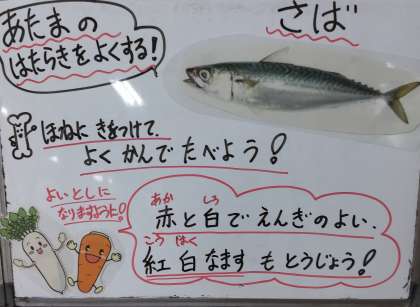 あたまの
はたらきをよくする!
さば
ほねに きをつけて、
よく かんで たべよう!
よいとしに
なりますように!
あか しろ
赤と白で えんぎのよい、
こう はく
紅白なます も とうじょう!